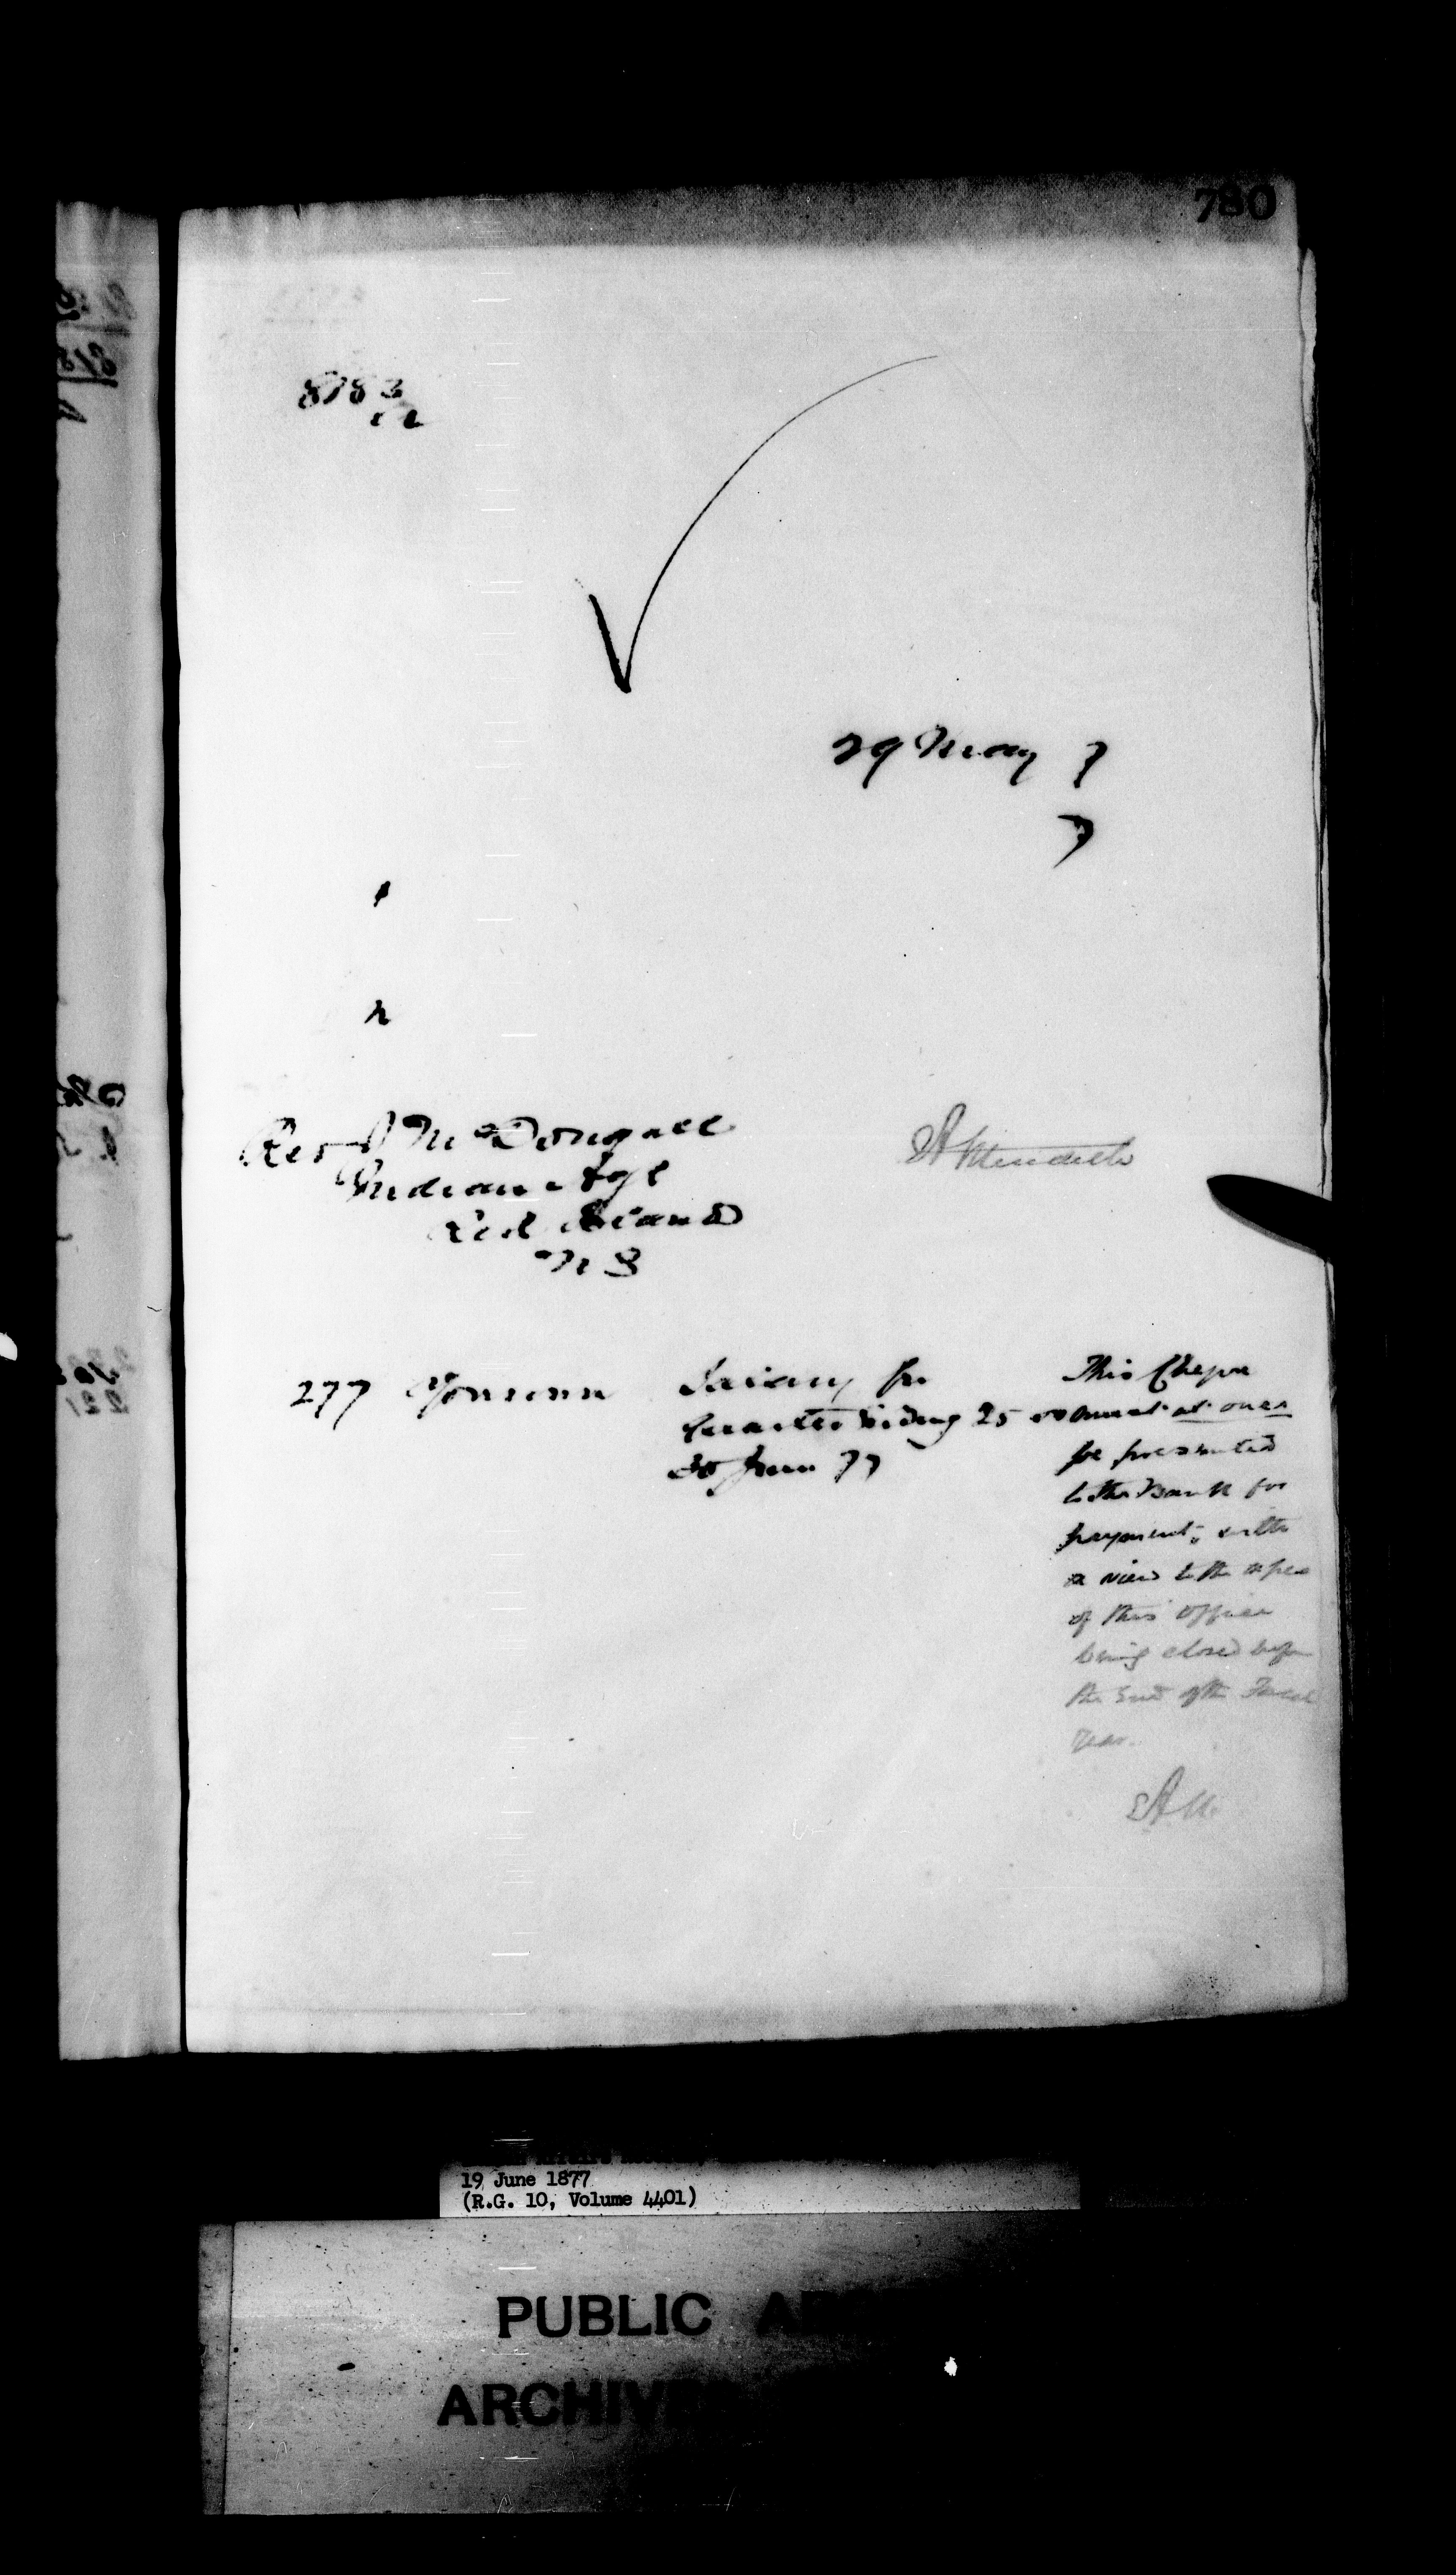 780
8183
29 May 7
7
1
2
Rev J McDougall
Indian Agt
Red Island
N S
277 Yourself Salary for
Quarter Ending 25 00
30 June 77
This Cheque
must at once
be presented
to the Bank for
payment, with
a view to the a/cs
of this Office
being closed before
the End of the Fiscal
Year.
19 June 1877
(R.G. 10, Volume 4401)
PUBLIC
ARCHIVES